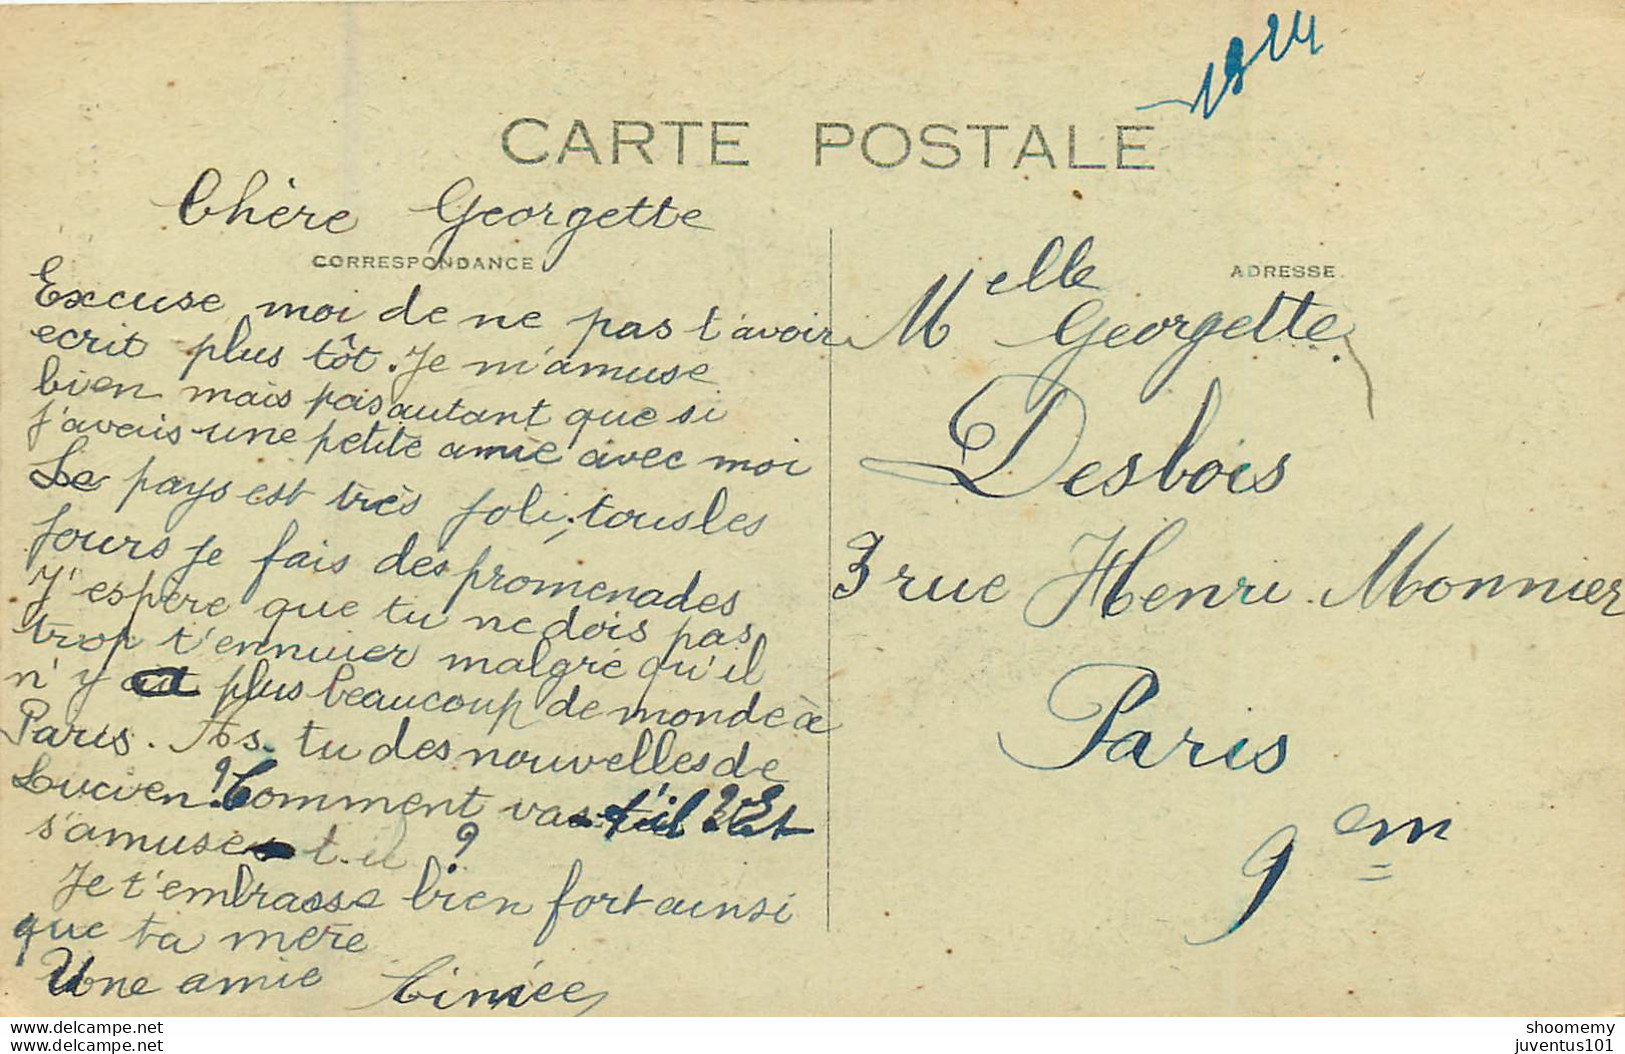 1924
CARTE POSTALE
Chère Georgette
CORRESPONDANCE
Excuse moi de ne pas t'avoir
ecrit plus tôt. Je m'amuse
bien mais pas autant que si
j'avais une petite amie avec moi
Le pays est très joli, tous les
jours je fais des promenades
J'espère que tu ne dois pas
trop t'ennuier malgré qu'il
n'y a plus beaucoup de monde à
Paris. As-tu des nouvelles de
Lucien? Comment va t'il? Et
s'amuse t-il ?
Je t'embrasse bien fort ainsi
que ta mère
Une amie
ADRESSE
Melle Georgette
Desbois
3 rue Henri Monnier
Paris
9em
www.delcampe.net
juventus101
shoomemy
juventus101